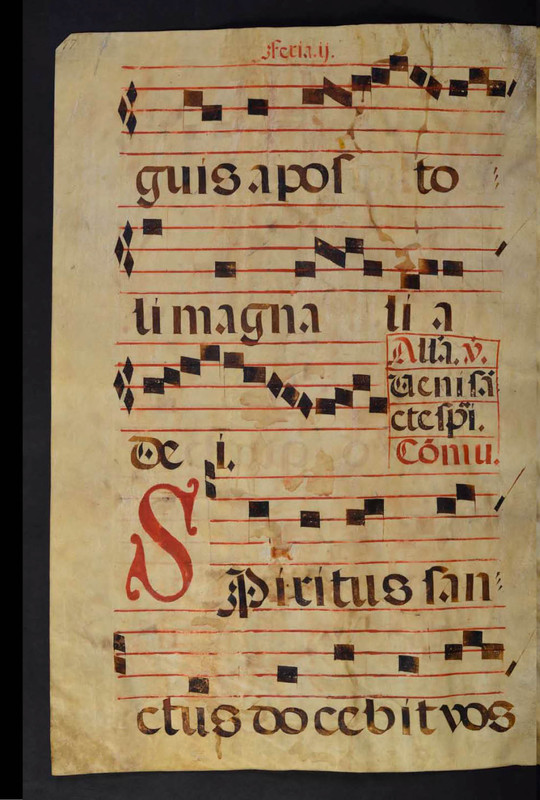 Feria.ij.
guis apos to
li magna li a
Alla. v̄.
Ueni sā
cte sp̄i.
De i.
Cōmu.
Spiritus san
ctus docebit vos